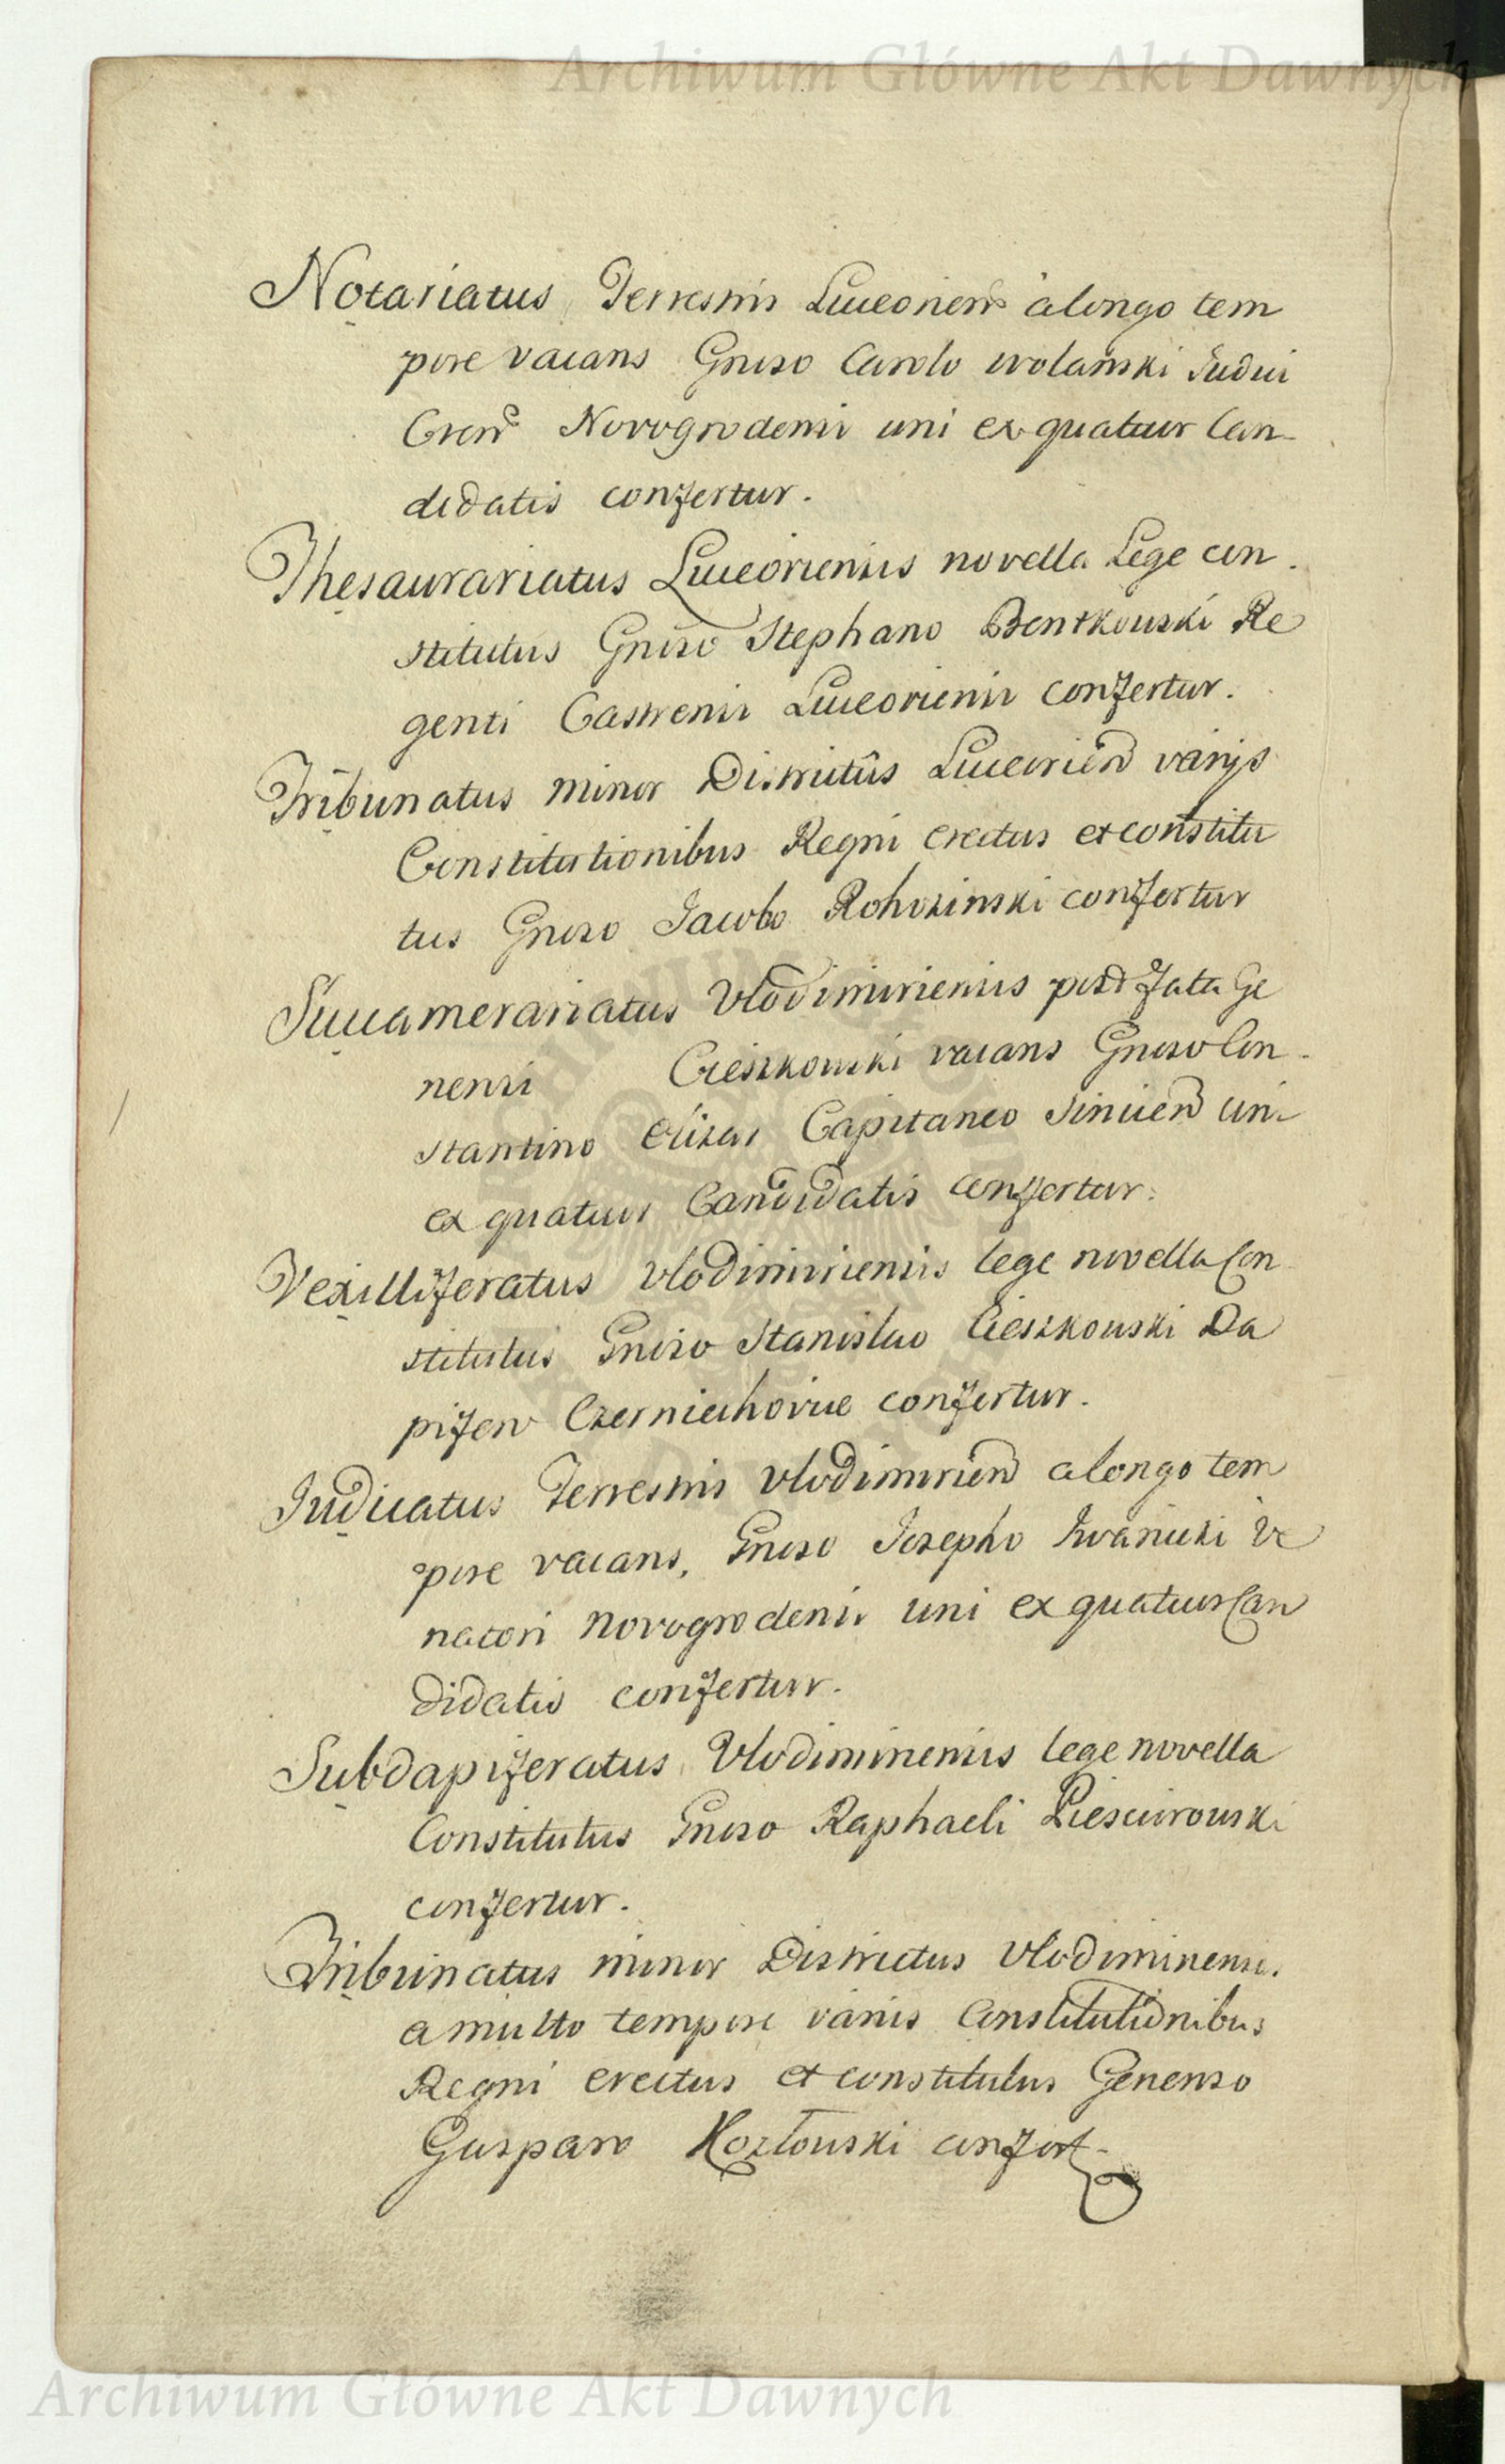 Archiwum Główne Akt Dawnych
Notariatus Terrestris Luceorien̄ a longo tem
pore vacans Gnoso Carolo Wolanski Judici
Cren̄ Novogrodensis uni ex quatuor Can-
didatis confertur.
Thesaurariatus Luceoriensis novella Lege con-
stitutus Gnoso Stephano Bentkowski Re
genti Castrensi Luceoriensi confertur.
Tribunatus minor Districtûs Luceorien̄ varijs
Constitutionibus Regni erectus et constitu
tus Gnoso Jacobo Rohozinski confertur
Succamerariatus Vlodimiriensis post fata Ge
nensi Cieszkowski vacans Gnoso Con-
stantino Capitaneo uni
ex quatuor Candidatis confertur.
Vexilliferatus Vlodimiriensis lege novella Con
stitutus Gnoso Stanislao Cieszkowski Da
pifero Czerniechoviae confertur.
Judicatus Terrestris Vlodimirien̄ a longo tem
pore vacans, Gnoso Josepho Iwanicki Ve
natori Novogrodensi uni ex quatuor Can
didatis confertur.
Subdapiferatus Vlodimiriensis lege novella
Constitutus Gnoso Raphaeli
confertur.
Tribunatus minor Districtus Vlodimiriensi.
a multo tempore variis Constitutionibus
Regni erectus et constitutus Generoso
Gasparo Kozłowski confert-
Archiwum Główne Akt Dawnych